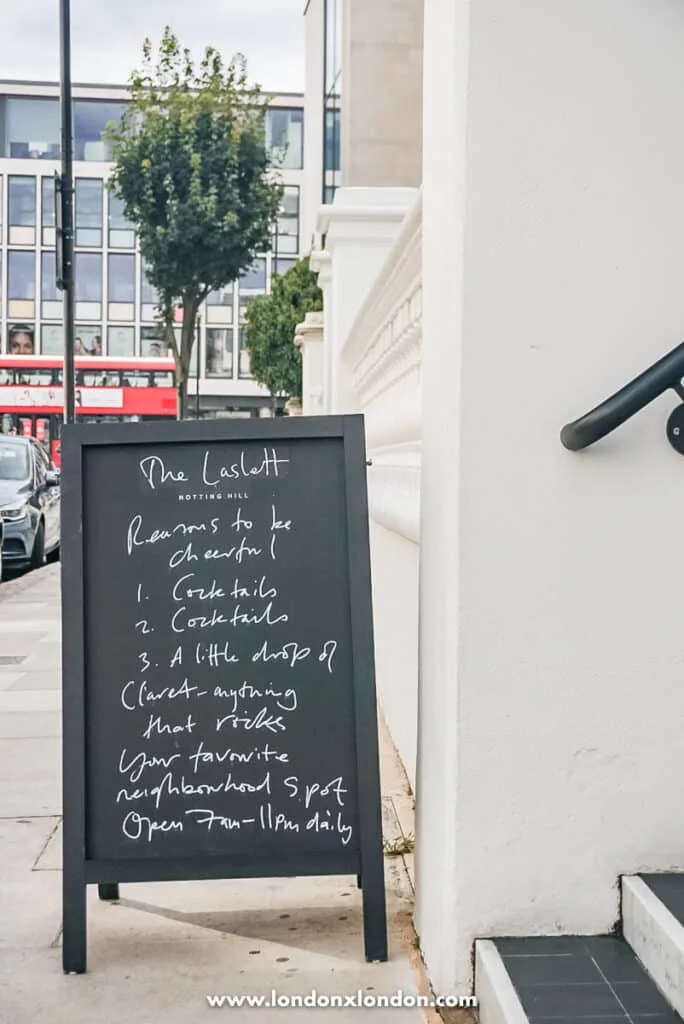 The Laslett
NOTTING HILL
Reasons to be
cheerful
1. Cocktails
2. Cocktails
3. A little drop of
Claret-anything
that rocks
Your favourite
neighbourhood spot
Open 7am-11pm daily
www.londonxlondon.com